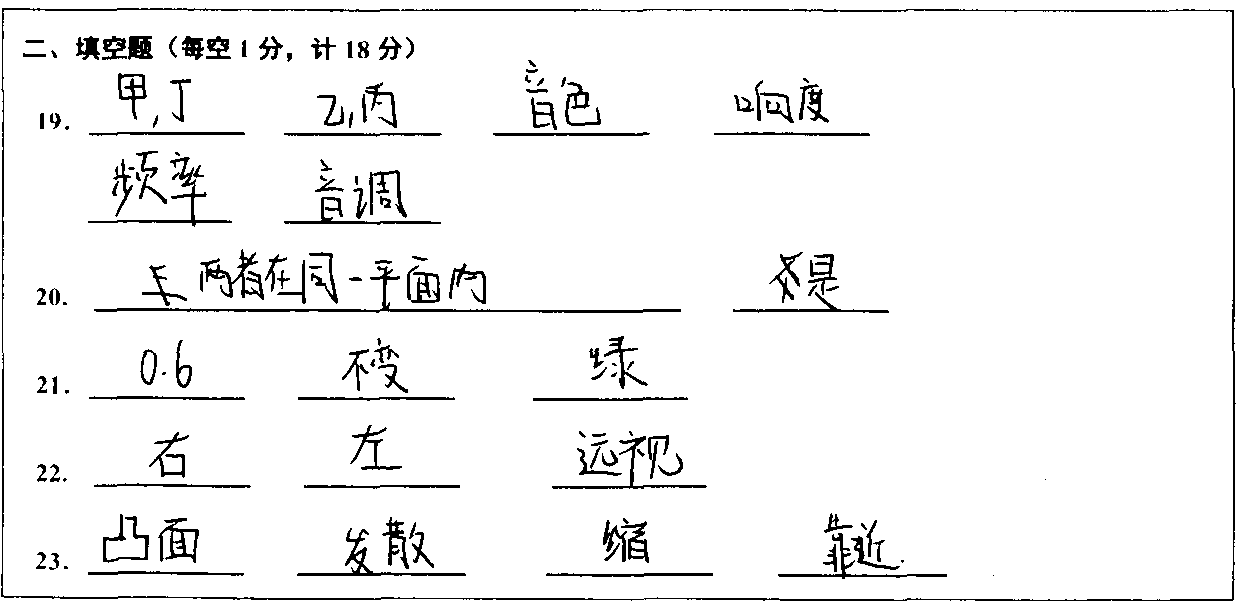 二、填空题（每空1分，计18分）
19. 甲,丁 乙,丙 音色 响度
频率 音调
20. 两者在同一平面内 是
21. 0.6 不变 绿
22. 右 左 远视
23. 凸面 发散 缩 靠近.